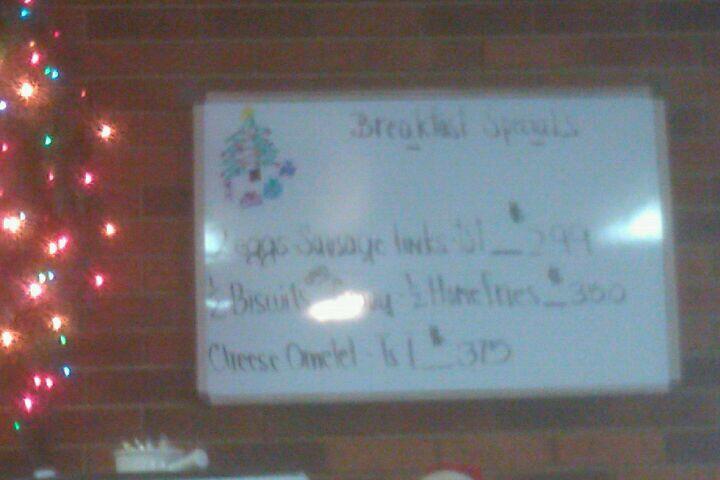 Breakfast Specials
2 eggs Sausage links - Tst __ $299
½ Biscuits Gravy - ½ Homefries __ $350
Cheese Omelet - Tst __ $375